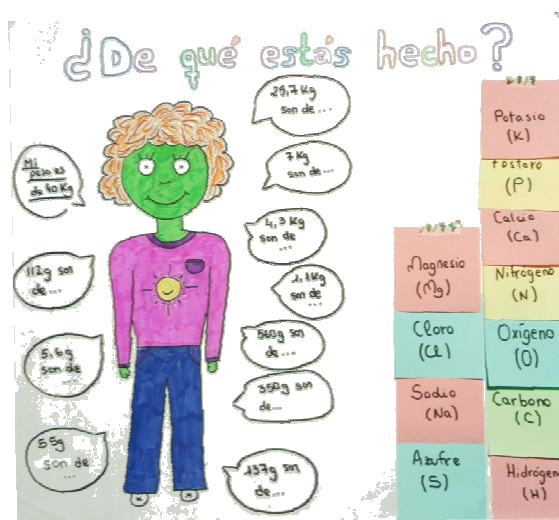 ¿De qué estás hecho?
Mi
peso es
de 40 Kg
112g son
de...
5,6g
son de
...
55g
son de
...
25,7 Kg
son de ...
7 Kg
son de...
4,3 Kg
son de
...
1,1Kg
son de
...
560g son
de...
350g son
de...
137g son
de...
Magnesio
(Mg)
Cloro
(Cl)
Sodio
(Na)
Azufre
(S)
Potasio
(K)
Fósforo
(P)
Calcio
(Ca)
Nitrógeno
(N)
Oxígeno
(O)
Carbono
(C)
Hidrógen
(H)